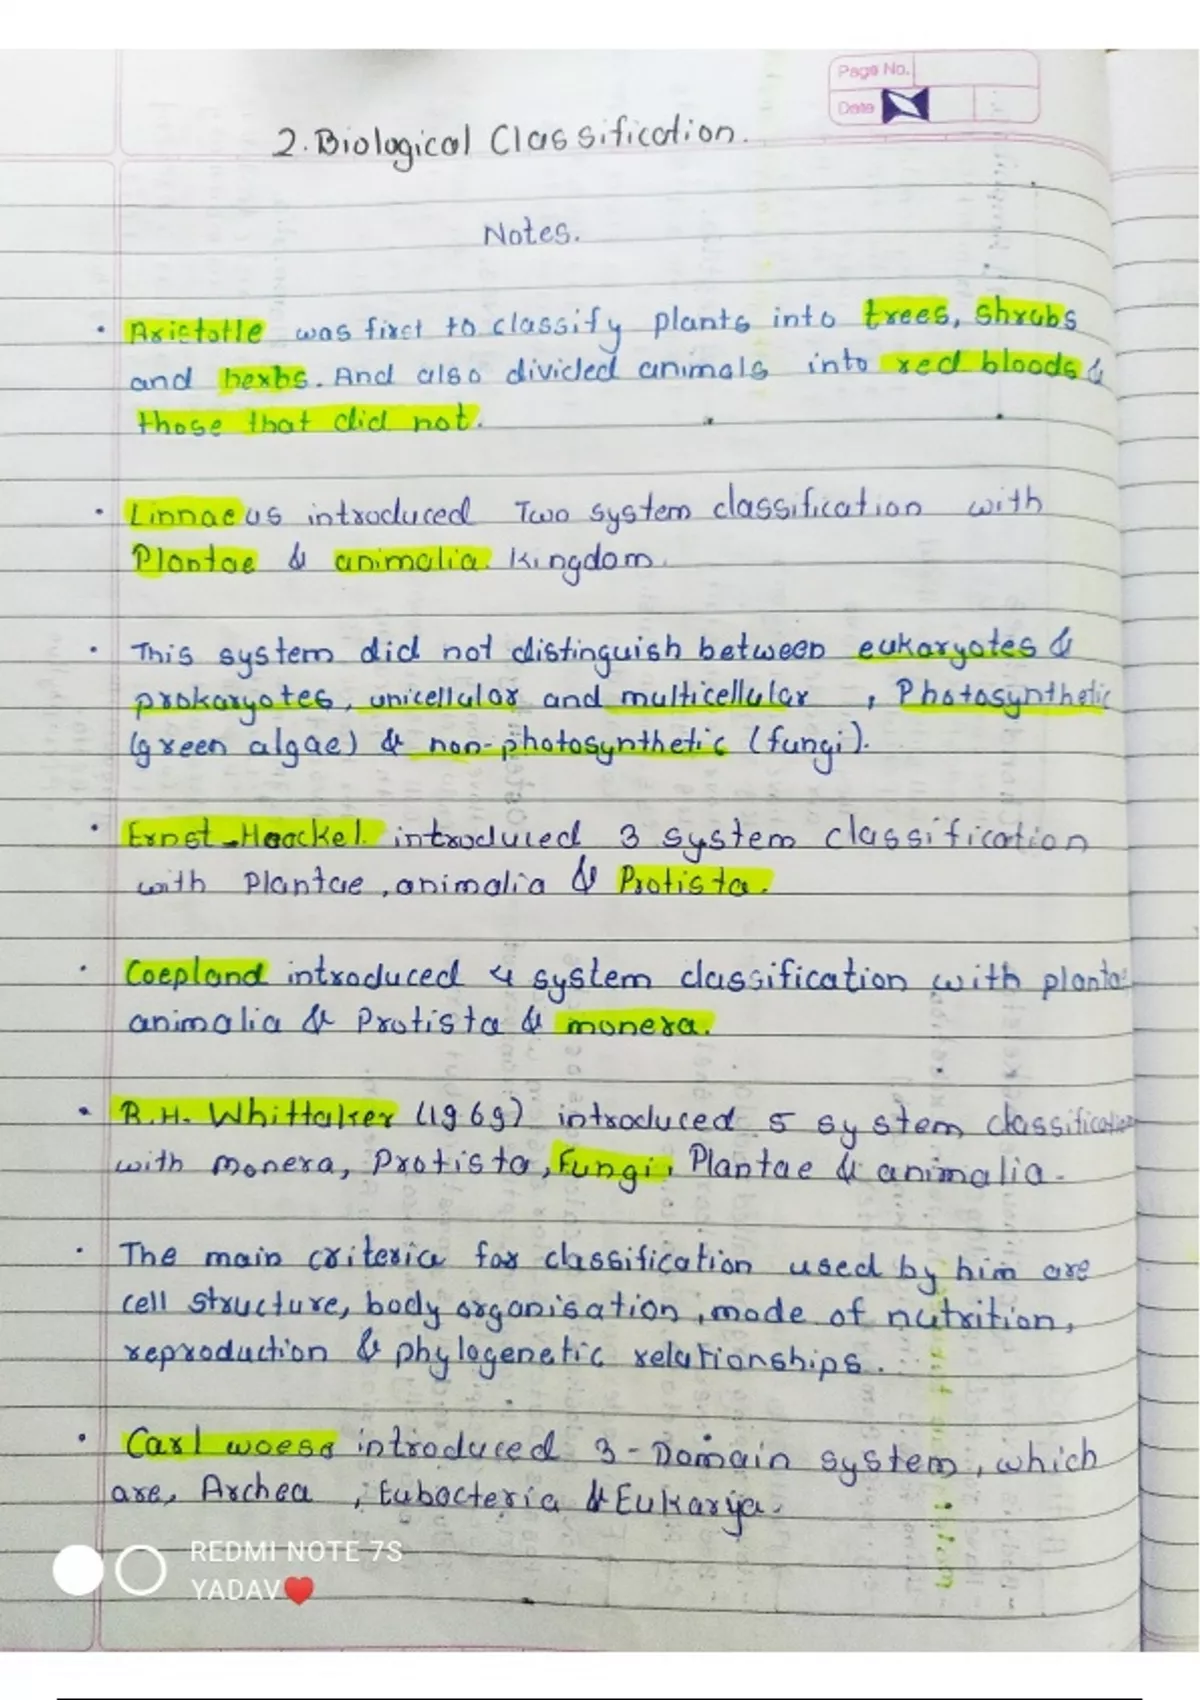 Page No.
Date
2. Biological Classification.
Notes.
• Aristotle was first to classify plants into trees, shrubs
and herbs. And also divided animals into red bloods &
those that did not.
• Linnaeus introduced Two system classification with
Plantae & animalia Kingdom.
• This system did not distinguish between eukaryotes &
prokaryotes, unicellular and multicellular , Photosynthetic
(green algae) & non-photosynthetic (fungi).
• Ernst-Haackel introduced 3 system classification
with Plantae, animalia & Protista.
• Coepland introduced 4 system classification with plantae
animalia & Protista & monera.
• R.H. Whittaker (1969) introduced 5 system classification
with monera, Protista, Fungi, Plantae & animalia.
• The main criteria for classification used by him are
cell structure, body organisation, mode of nutrition,
reproduction & phylogenetic relationships.
• Carl woese introduced 3-Domain system, which
are, Archea , Eubacteria & Eukarya.
REDMI NOTE 7S
YADAV♥